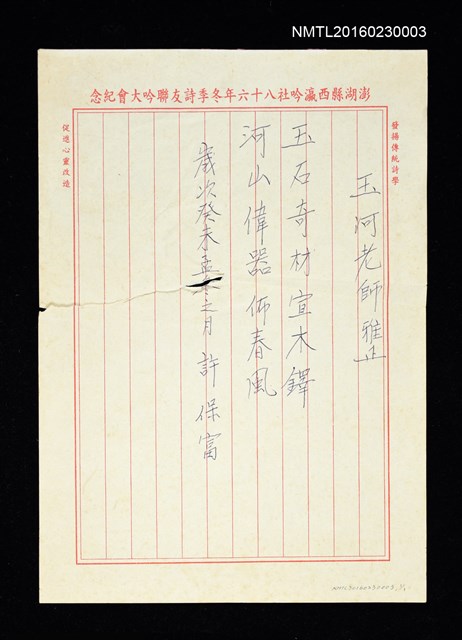 NMTL20160230003
澎湖縣西瀛吟社八十六年冬季詩友聯吟大會紀念
發揚傳統詩學
玉河老師雅正
玉石奇材宣木鐸
河山偉器佈春風
歲次癸未孟之月 許保富
促進心靈改造